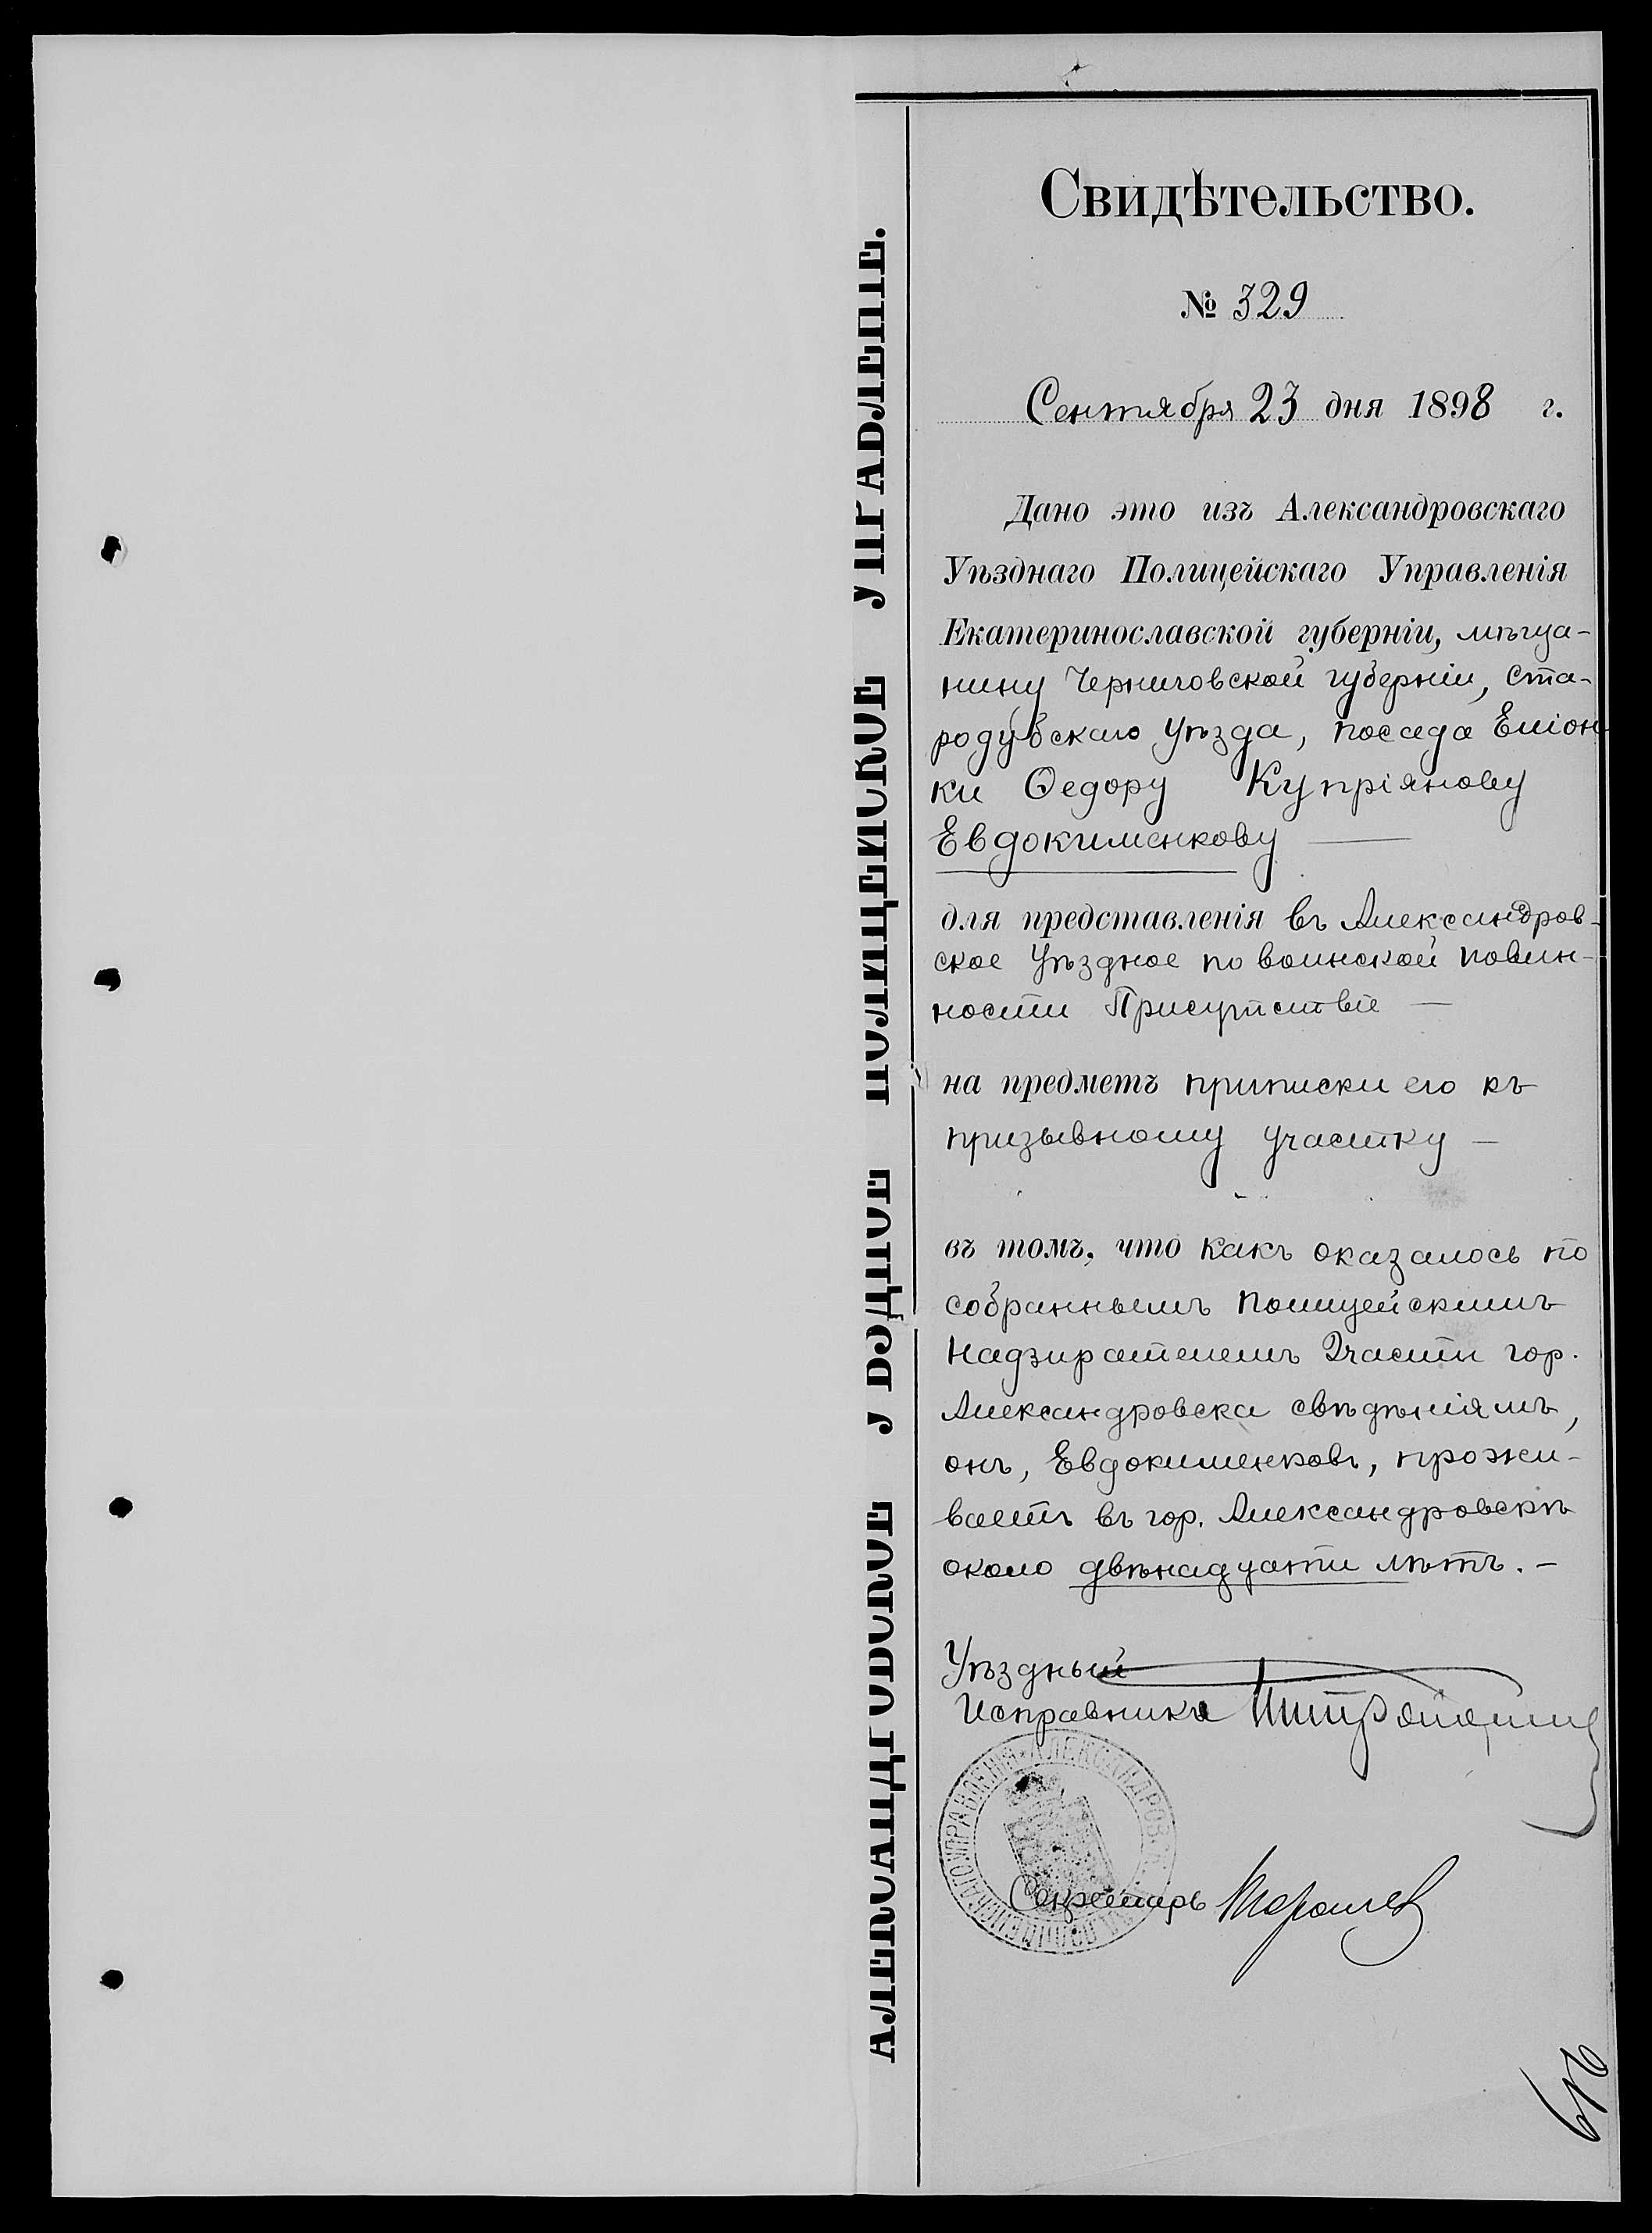 Свидѣтельство.
№ 329
Сентября 23 дня 1898 г.
Дано это изъ Александровскаго
Уѣзднаго Полицейскаго Управленія
Екатеринославской губерніи, мѣща-
нину Черниговской губерніи, Ста-
родубскаго уѣзда, посада Еліон-
ки Ѳедору Купріянову
Евдокименкову
для представленія въ Александров-
ское Уѣздное по воинской повин-
ности Присутствіе
на предметъ приписки его къ
призывному участку
въ томъ, что какъ оказалось по
собраннымъ Полицейскимъ
Надзирателемъ 2 части гор.
Александровска свѣдѣніямъ,
онъ, Евдокименковъ, прожи-
ваетъ въ гор. Александровскѣ
около двѣнадцати лѣтъ.
Уѣздный
Исправникъ
Секретарь
АЛЕКСАНДРОВСКОЕ УѢЗДНОЕ ПОЛИЦЕЙСКОЕ УПРАВЛЕНІЕ.